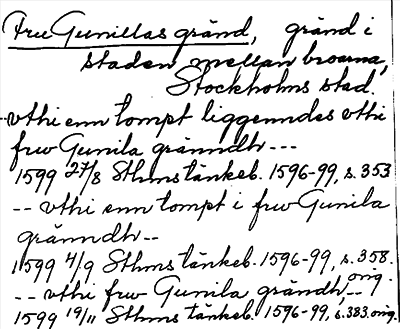 Fru Gunillas gränd, gränd i
staden mellan broarna,
Stockholms stad.
-- vthi enn tompt liggenndes vthi
frw Gunila gränndh ---
1599 27/8 Sthms tänkeb. 1596-99, s. 353
-- vthi enn tompt i frw Gunila
gränndh --
1599 4/9 Sthms tänkeb. 1596-99, s. 358.
orig.
-- vthi frw Gunila grändh, --
1599 19/11 Sthms tänkeb. 1596-99, s. 383. orig.